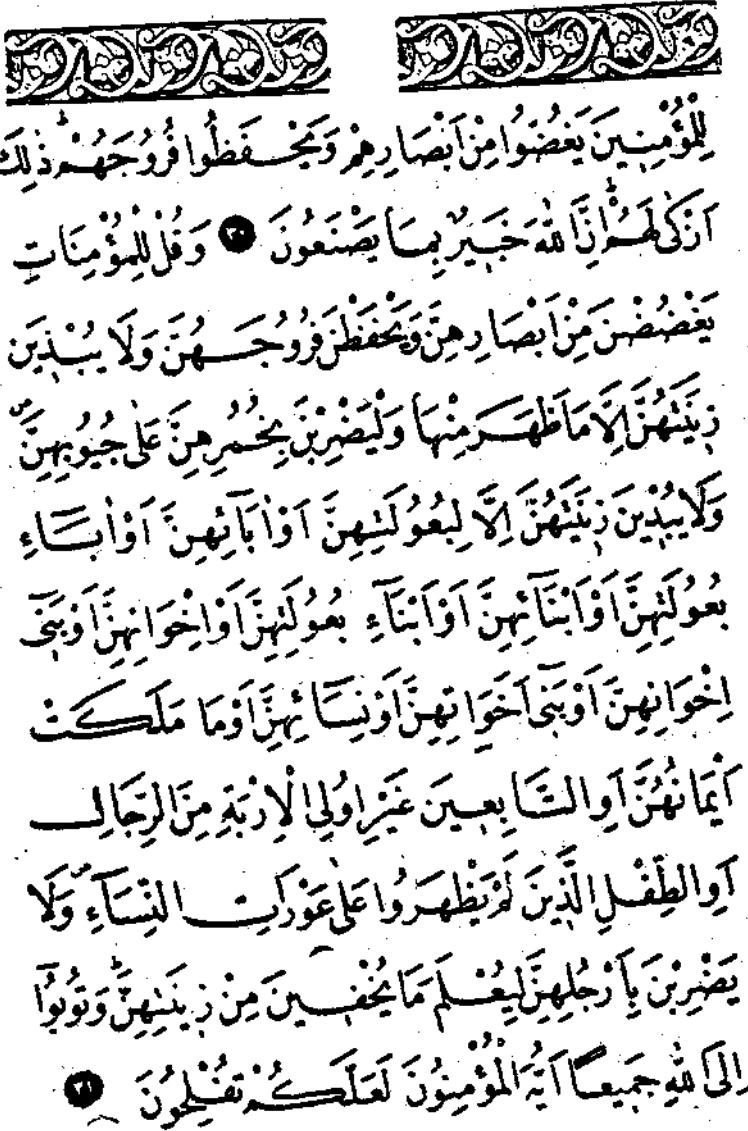 لِلْمُؤْمِنِينَ يَغُضُّوا مِنْ اَبْصَارِهِمْ وَيَحْفَظُوا فُرُوجَهُمْ ذٰلِكَ
اَزْكٰى لَهُمْ اِنَّ اللّٰهَ خَبِيرٌ بِمَا يَصْنَعُونَ ﴿٣٠﴾ وَقُلْ لِلْمُؤْمِنَاتِ
يَغْضُضْنَ مِنْ اَبْصَارِهِنَّ وَيَحْفَظْنَ فُرُوجَهُنَّ وَلَا يُبْدِينَ
زِينَتَهُنَّ اِلَّا مَا ظَهَرَ مِنْهَا وَلْيَضْرِبْنَ بِخُمُرِهِنَّ عَلٰى جُيُوبِهِنَّ
وَلَا يُبْدِينَ زِينَتَهُنَّ اِلَّا لِبُعُولَتِهِنَّ اَوْ اٰبَآئِهِنَّ اَوْ اٰبَآءِ
بُعُولَتِهِنَّ اَوْ اَبْنَآئِهِنَّ اَوْ اَبْنَآءِ بُعُولَتِهِنَّ اَوْ اِخْوَانِهِنَّ اَوْ بَنٓى
اِخْوَانِهِنَّ اَوْ بَنٓى اَخَوَاتِهِنَّ اَوْ نِسَآئِهِنَّ اَوْ مَا مَلَكَتْ
اَيْمَانُهُنَّ اَوِ التَّابِعِينَ غَيْرِ اُولِى الْاِرْبَةِ مِنَ الرِّجَالِ
اَوِ الطِّفْلِ الَّذِينَ لَمْ يَظْهَرُوا عَلٰى عَوْرَاتِ النِّسَآءِ وَلَا
يَضْرِبْنَ بِاَرْجُلِهِنَّ لِيُعْلَمَ مَا يُخْفِينَ مِنْ زِينَتِهِنَّ وَتُوبُٓوا
اِلَى اللّٰهِ جَمِيعًا اَيُّهَ الْمُؤْمِنُونَ لَعَلَّكُمْ تُفْلِحُونَ ﴿٣١﴾